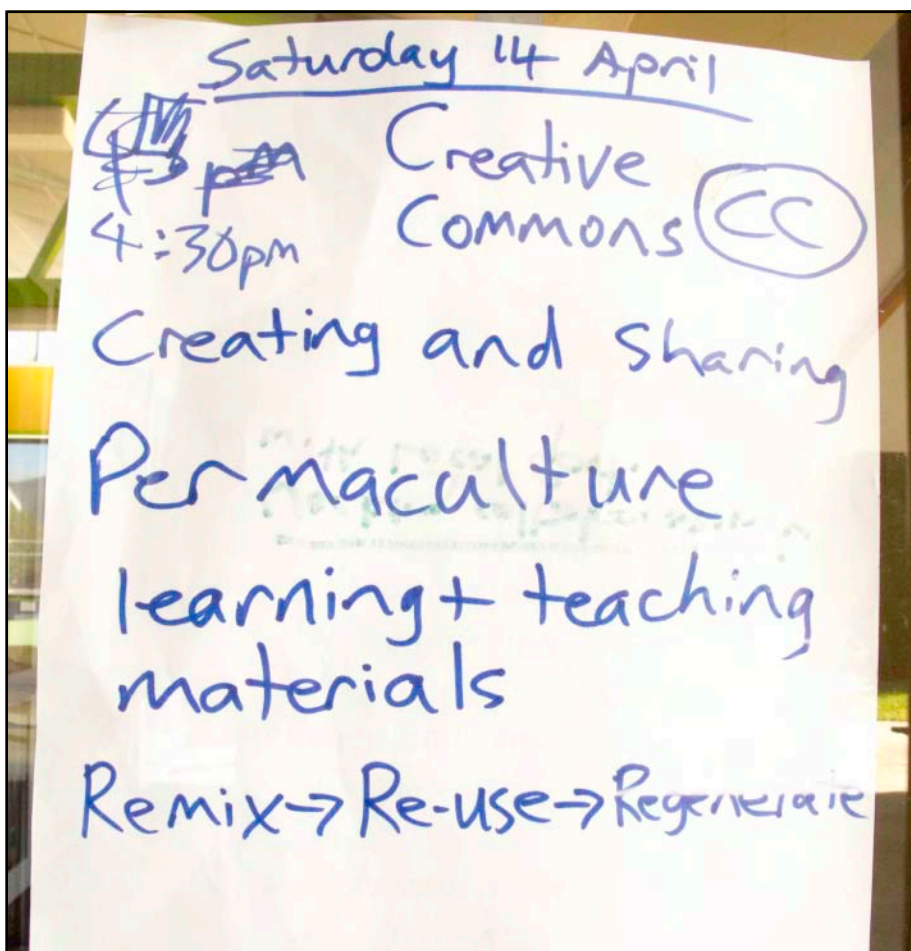 Saturday 14 April
Creative
Commons CC
4:30pm
Creating and Sharing
Permaculture
learning + teaching
materials
Remix → Re-use → Regenerate